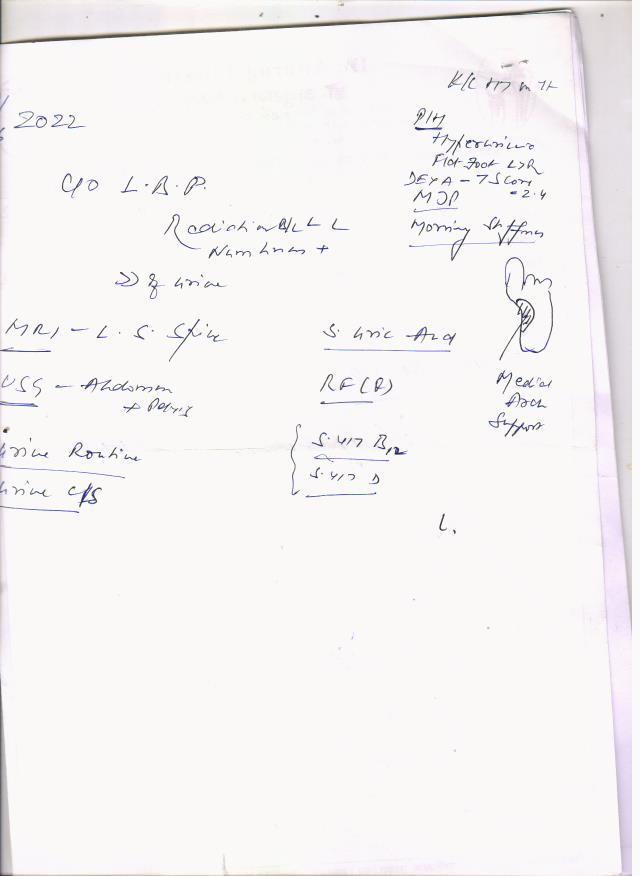 K/C
2022
P/H
Flat Foot L>R
DEXA - T Score
- 2.4
MJP
Morning Stiffness
C/O L.B.P.
Radiation B/L L L
Numbness +
of urine
MRI - L.S. Spine
S. Uric Acid
USG - Abdomen
+ Pelvis
RF (R)
Medial
Arch
Support
Urine Routine
S. Vit B12
Urine C/S
S. Vit D
L.